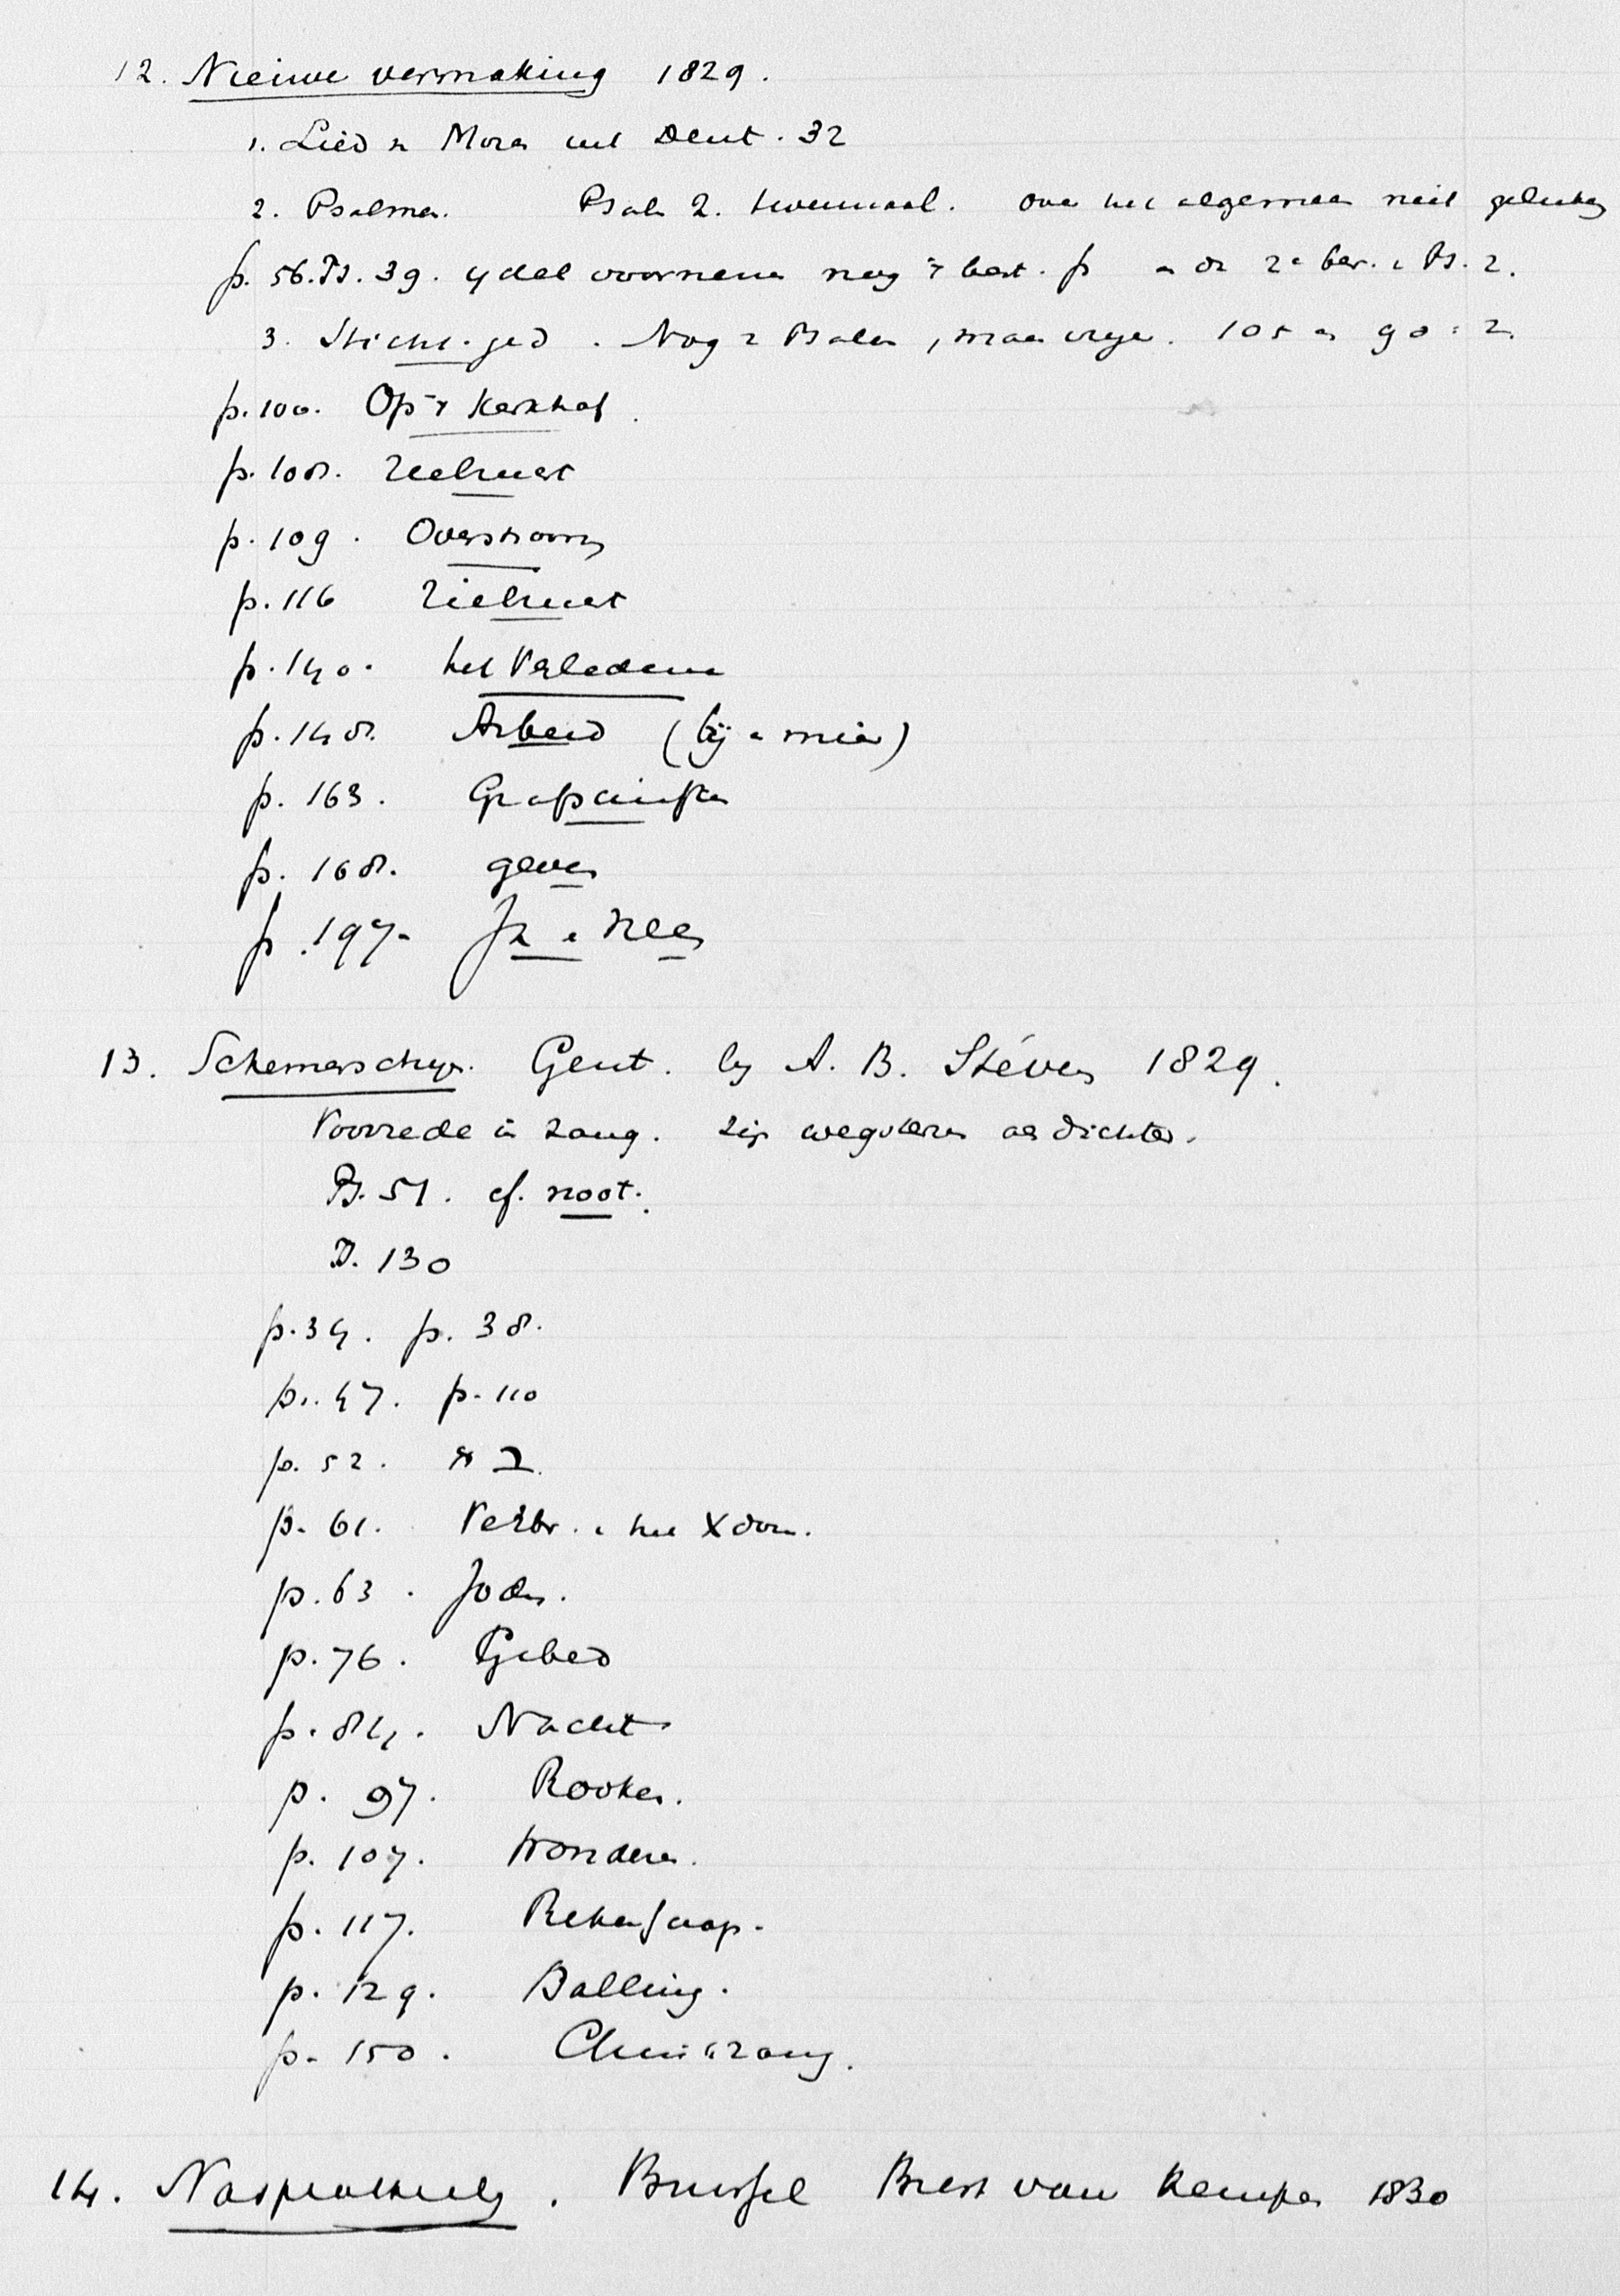 12. Nieuwe vermaking 1829.
1. Lied v Mozes uit Deut. 32
2. Psalmen. Psalm 2. tweemaal. over het algemeen niet gelukkig
p. 56. Ps. 39. ydel voornemen nog 't best. p en de 2e ber. v Ps. 2.
3. Sticht. ged. Nog 2 Psalmen, maar vrye. 105 en 90: 2.
p. 100. Op 't Kerkhof.
p. 108. Zielrust
p. 109. Overstroom
p. 116 Zielrust
p. 140. het Verledene
p. 148. Arbeid (bij v mier)
p. 163. Grafschriften
p. 168. geven
p. 197. Ja en Neen
13. Schemerschyn. Gent. by A. B. Stéven 1829.
Voorrede in zang. zijn wegsterven als dichter.
Ps. 51. cf. noot.
Ps. 130
p. 34. p. 38.
p. 47. p. 110
p. 52.
p. 61. Verbr. v het Xdom.
p. 63. Joden.
p. 76. Gebed
p. 84. Nacht
p. 97. Rooken.
p. 107. Wonderen.
p. 117. Rekenschap.
p. 129. Balling.
p. 150. Cluiszang.
14. Nasprokkeling. Brussel Brest van Kempen 1830